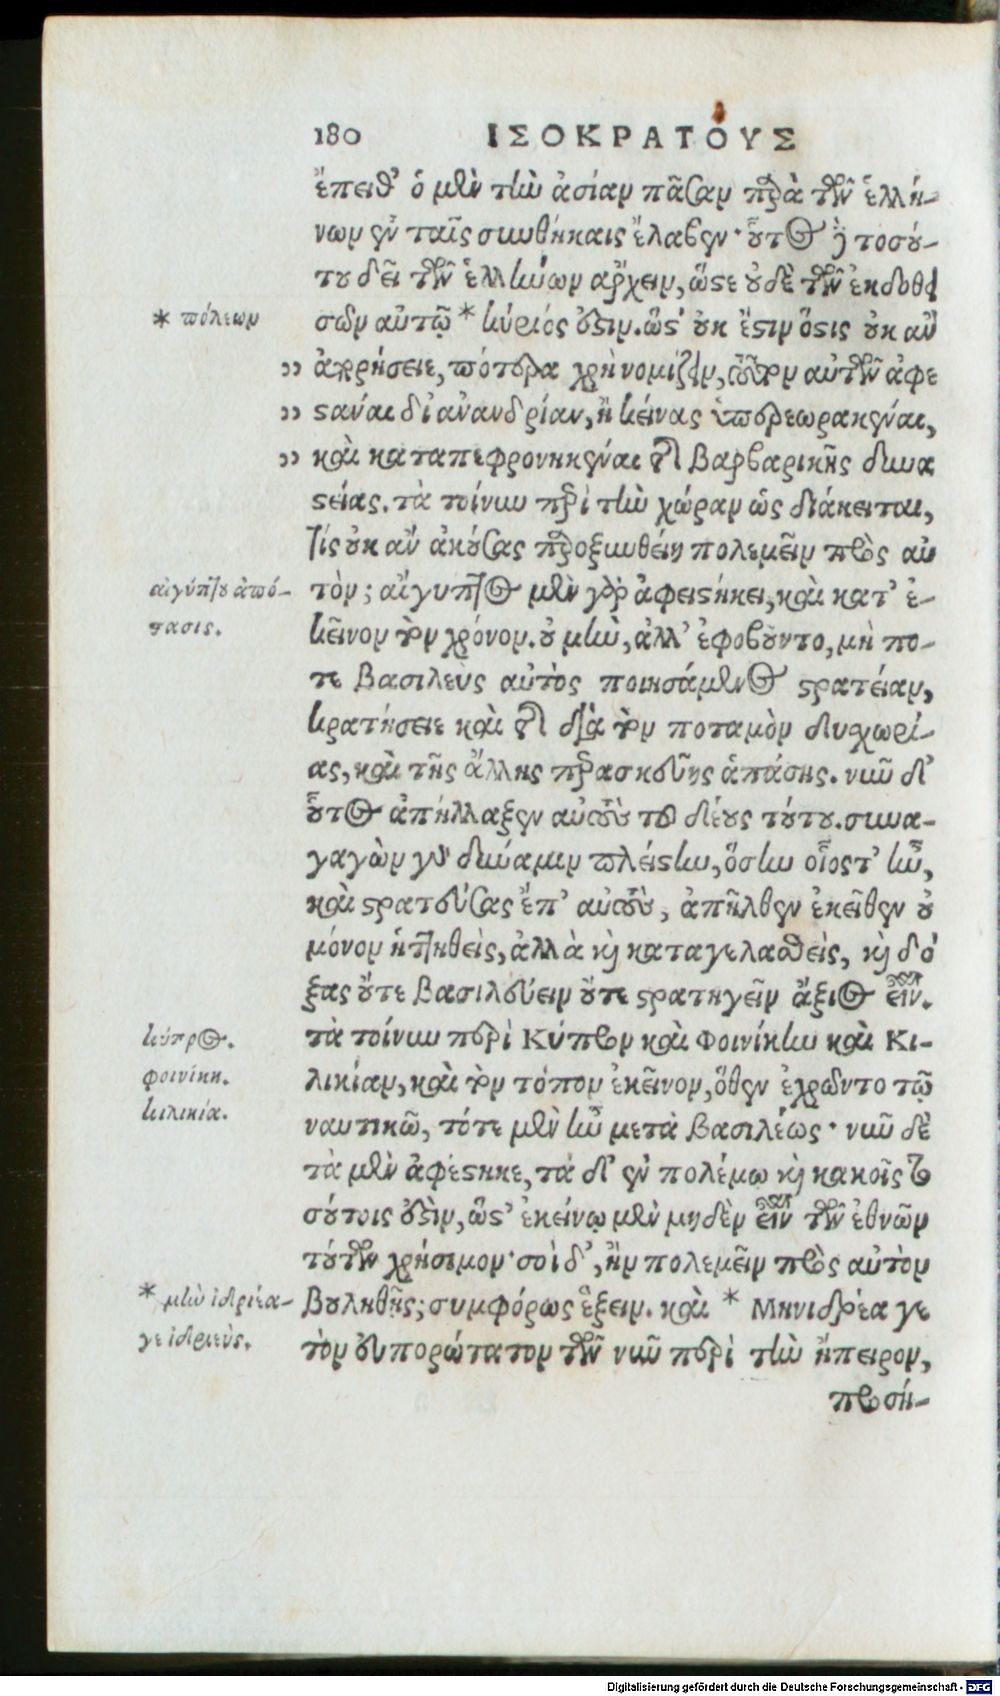 180 ΙΣΟΚΡΑΤΟΥΣ
ἔπειθ' ὁ μὲν τὴν ἀσίαν πᾶσαν παρὰ τῶν ἑλλή-
νων ἐν ταῖς συνθήκαις ἔλαβεν· οὗτος δὲ τοσού-
του δεῖ τῶν ἑλλήνων ἄρχειν, ὥστε οὐδὲ τῶν ἐκδοθει
σῶν αὐτῷ * κύριός ἐστιν. ὥστ' οὐκ ἔστιν ὅστις οὐκ ἂν
* πόλεων
„ ἀπορήσειε, πότερα χρὴ νομίζειν, τοῦτον αὐτῶν ἀφε
„ στάναι δι' ἀνανδρίαν, ἢ κείνας ὑπερεωρακέναι,
„ καὶ καταπεφρονηκέναι τῆς βαρβαρικῆς δυνα
στείας. τὰ τοίνυν περὶ τὴν χώραν ὡς διάκειται,
τίς οὐκ ἂν ἀκούσας παροξυνθείη πολεμεῖν πρὸς αὐ
τόν; αἴγυπτος μὲν γὰρ ἀφειστήκει, καὶ κατ' ἐ-
αἰγύπτου ἀπό-
στασις.
κεῖνον τὸν χρόνον. οὐ μὴν, ἀλλ' ἐφοβοῦντο, μή πο-
τε βασιλεὺς αὐτὸς ποιησάμενος στρατείαν,
κρατήσειε καὶ τῆς διὰ τὸν ποταμὸν δυσχωρί-
ας, καὶ τῆς ἄλλης παρασκευῆς ἁπάσης. νῦν δ'
οὗτος ἀπήλλαξεν αὐτοὺς τοῦ δέους τούτου. συνα-
γαγὼν γὰρ δύναμιν πλείστην, ὅσην οἷός τ' ἦν,
καὶ στρατεύσας ἐπ' αὐτοὺς, ἀπῆλθεν ἐκεῖθεν οὐ
μόνον ἡττηθείς, ἀλλὰ καὶ καταγελασθείς, καὶ δό
ξας οὔτε βασιλεύειν οὔτε στρατηγεῖν ἄξιος εἶναι.
τὰ τοίνυν περὶ Κύπρον καὶ Φοινίκην καὶ Κι-
κύπρος.
φοινίκη.
κιλικία.
λικίαν, καὶ τὸν τόπον ἐκεῖνον, ὅθεν ἐχρῶντο τῷ
ναυτικῶ, τότε μὲν ἦν μετὰ βασιλέως· νῦν δὲ
τὰ μὲν ἀφέστηκε, τὰ δ' ἐν πολέμω καὶ κακοῖς το
σούτοις ἐστὶν, ὥστ' ἐκείνῳ μὲν μηδὲν εἶναι τῶν ἐθνῶν
τούτων χρήσιμον· σοὶ δ', ἢν πολεμεῖν πρὸς αὐτὸν
βουληθῇς; συμφόρως ἕξειν. καὶ * Μηνιδρέα γε
* μὴν ἰδριέα-
γε ἰδριεὺς.
τὸν εὐπορώτατον τῶν νῦν περὶ τὴν ἤπειρον,
προσή-
Digitalisierung gefördert durch die Deutsche Forschungsgemeinschaft - DFG